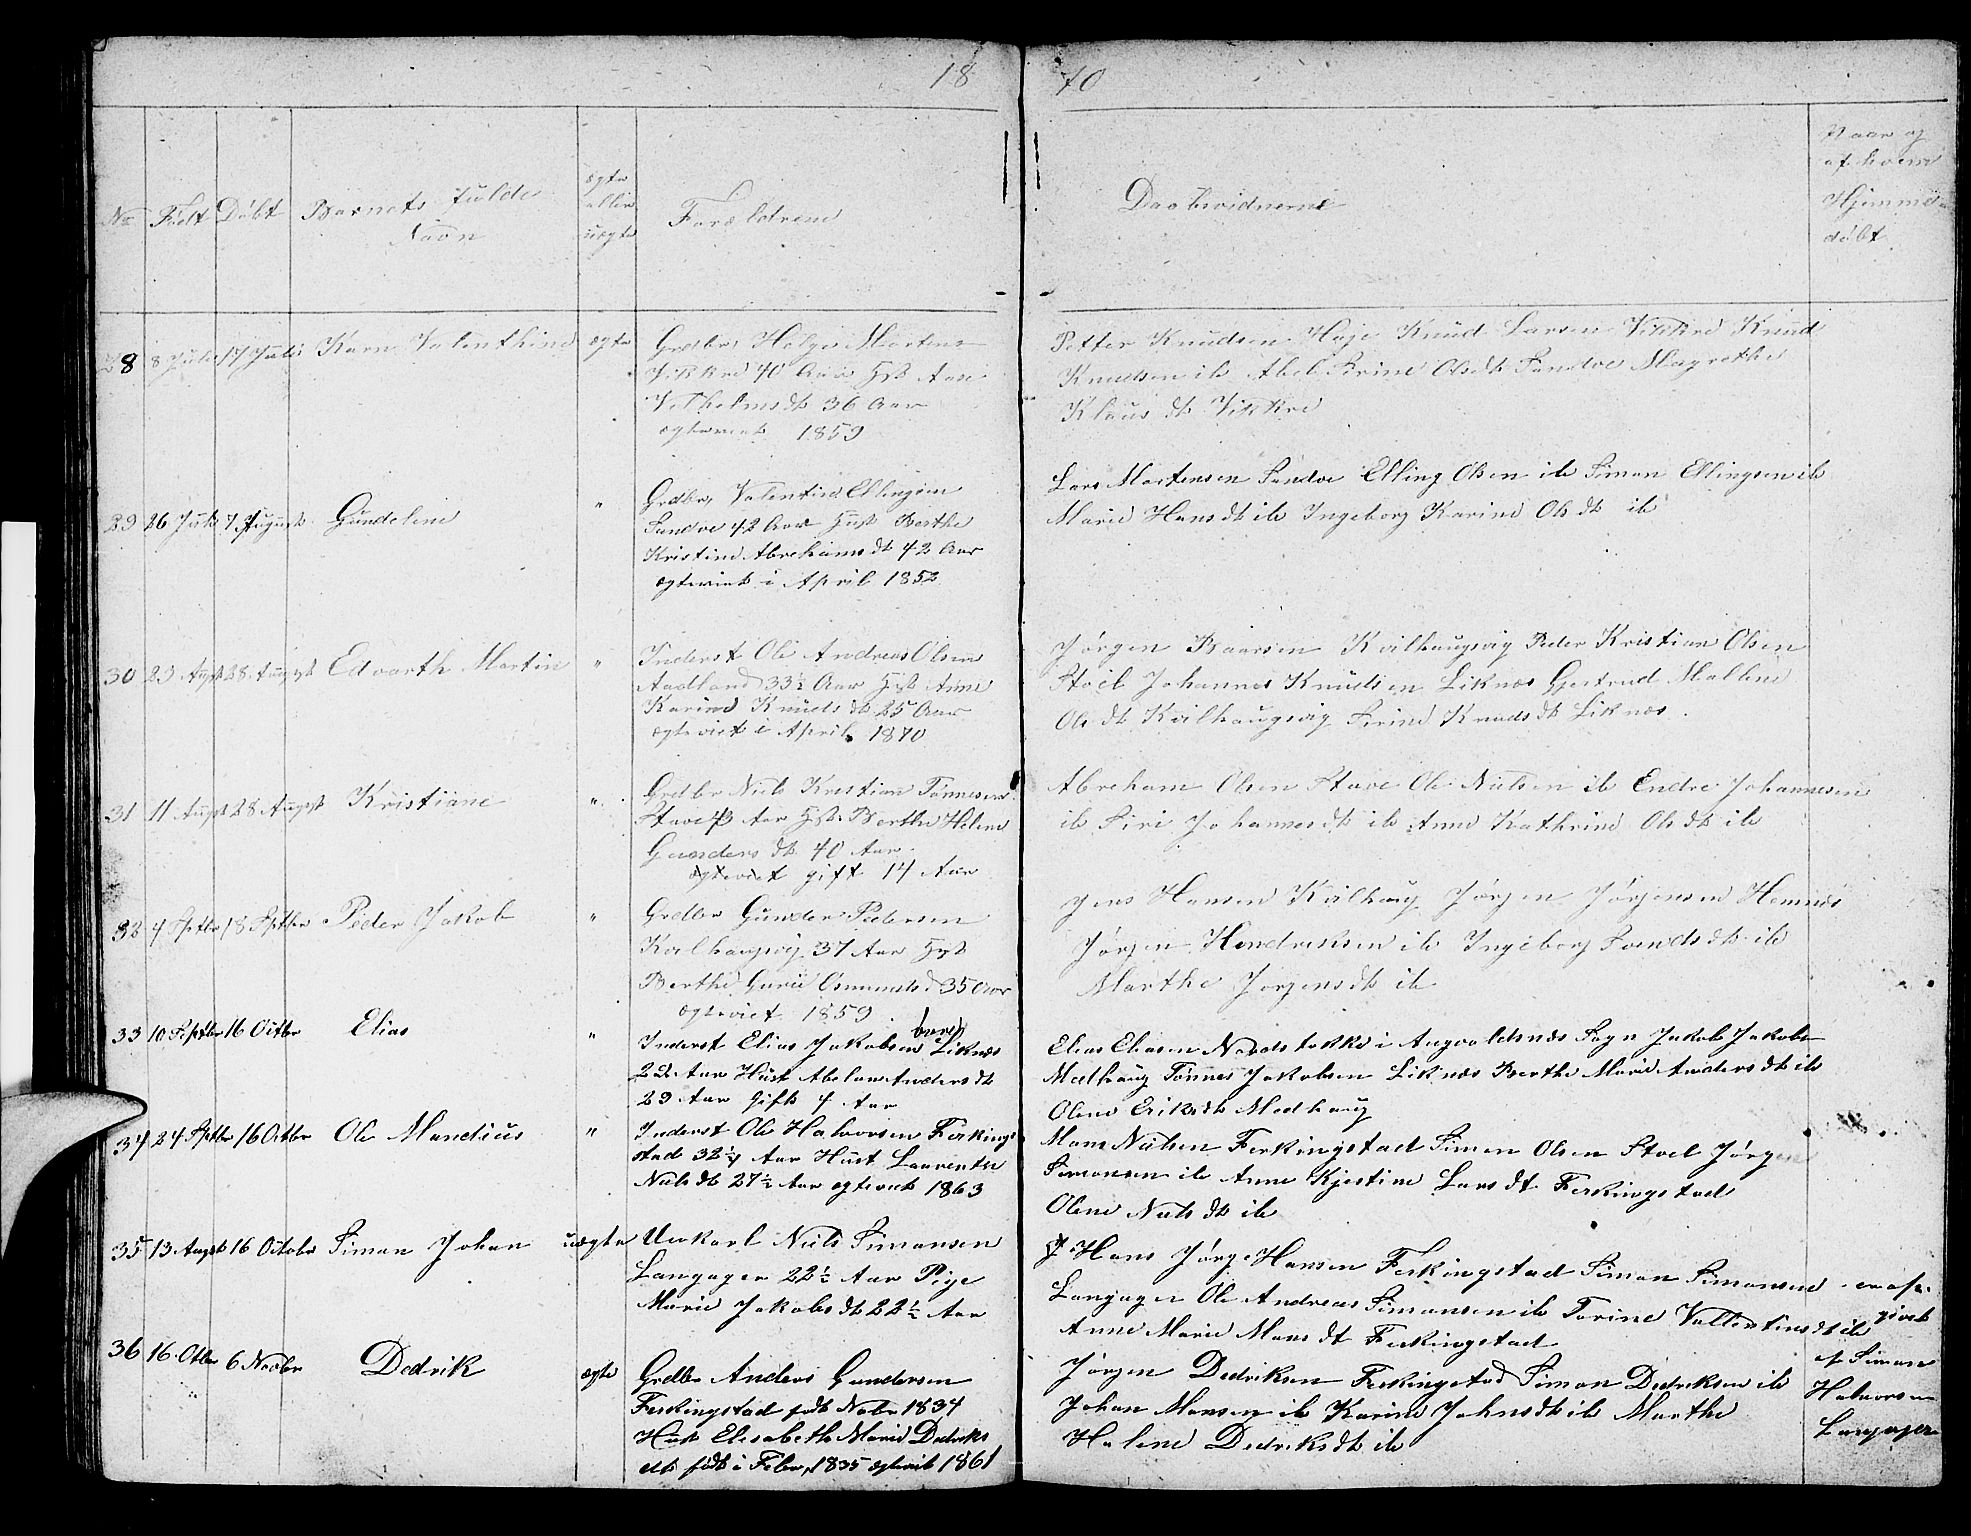 18 70
No Født Døbt Barnets fulde Navn ægte eller uægte Forældrene Daabvidnerne Naar og af hvem Hjemmedøbt
28 8 Juli 17 Juli Karn Valenthine ægte Grdbr Helge Mortens
Vikkre 40 Aar Hst Ane
Vilhelmsdt 36 Aar
ægteviet 1859
Petter Knudsen Høje Knud Larsen Vikkre Knud
Knudsen ib Abel Serine Olsdt Sandve Magrethe
Klausdt Vikkre
29 26 Juli 7 August Gundeline " Grdbr Valentin Ellingsen
Sandve 42 Aar Hust Berthe
Kristine Abrahamsdt 42 Aar
ægteviet i April 1852
Lars Mortensen Sandve Elling Olsen ib Simon Ellingsen ib
Marie Hansdt ib Ingeborg Karine Olsdt ib
30 23 Augst 28 August Edvarth Martin " Inderst Ole Andreas Olsen
Aadland 33½ Aar Hst Anne
Karine Knudsdt 25 Aar
ægteviet i April 1870
Jørgen Baarsen Kvilhaugsvig Peder Kristian Olsen
Stoel Johannes Knudsen Liknes Gjertrud Mallene
Olsdt Kvilhaugsvig Serine Knudsdt Liknes
31 11 Augst 28 August Kristiane " Grdbr Niels Kristian Tønnesen
Stave Aar Hst Berthe Helene
Gundersdt 40 Aar
ægteviet gift 14 Aar
Abreham Olsen Stave Ole Nielsen ib Endre Johannesen
ib Siri Johannesdt ib Anne Kathrine Olsdt ib
32 4 Septbr 18 Septbr Peder Jakob " Grdbr Gunder Pedersen
Kvilhaugsvig 37 Aar Hst
Berthe Gurie Osmundsd 35 Aar
ægteviet 1859
Jens Hansen Kvilhaug Jørgen Jørgensen Hemnes
Jørgen Hendriksen ib Ingeborg Svendsdt ib
Marthe Jørgensdt ib
33 10 Septbr 16 Octbr Elias " Inderst Elias Jakobsen Liknes
Aar Hust Abelone Andersdt
29 Aar Gift 4 Aar
Elias Eliasen Nordstokke i Augvaldsnes Sogn Jakob Jakobs
Medhaug Tønnes Jakobsen Liknes Berthe Marie Andersdt ib
Olene Eriksdt Medhaug
34 24 Septbr 16 Octbr Ole Mandius " Inderst Ole Halvorsen Ferkings
stad 32½ Aar Hust Laurentse
Nielsdt 27½ Aar ægteviet 1863
Mons Nielsen Ferkingstad Simon Olsen Stoel Jørgen
Simonsen ib Anne Kjestine Larsdt Ferkingstad
Olene Nielsdt ib
35 13 Augst 16 Octobr Simon Johan uægte Unkarl Niels Simonsen
Langager 22½ Aar Pige
Marie Jakobsdt 22½ Aar
Hans Jørge Hansen Ferkingstad Simon Simonsen
Langager Ole Andreas Simonsen ib Torine Vallentinsdt ib
Anne Marie Monsdt Ferkingstad
givet
af Simon
Halvorsen
Langager
36 16 Otbr 6 Novbr Dedrik ægte Grdbr Anders Gundersen
Ferkingstad født Nobr 1834
Hust Elisabeth Marie Dedriks
dt født i Febr 1835 ægteviet 1861
Jørgen Dedriksen Ferkingstad Simon Dedriksen ib
Johan Monsen ib Karine Johnsdt ib Marthe
Helene Dedriksdt ib